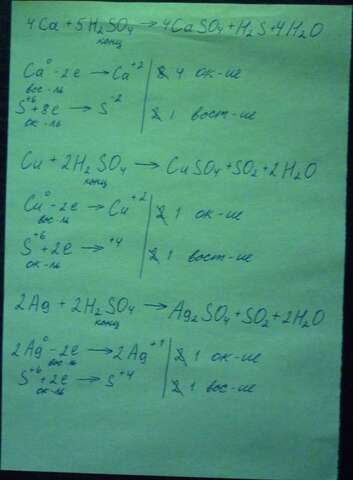 4Ca + 5H₂SO₄ → 4CaSO₄ + H₂S + 4H₂O
конц
Ca⁰ - 2e → Ca⁺² | 4 ок-ие
вос-ль
S⁺⁶ + 8e → S⁻² | 1 вост-ие
ок-ль
Cu + 2H₂SO₄ → CuSO₄ + SO₂ + 2H₂O
конц
Cu⁰ - 2e → Cu⁺² | 1 ок-ие
вос-ль
S⁺⁶ + 2e → ⁺⁴ | 1 вост-ие
ок-ль
2Ag + 2H₂SO₄ → Ag₂SO₄ + SO₂ + 2H₂O
конц
2Ag⁰ - 2e → 2Ag⁺¹ | 1 ок-ие
вос-ль
S⁺⁶ + 2e → S⁺⁴ | 1 вос-ие
ок-ль